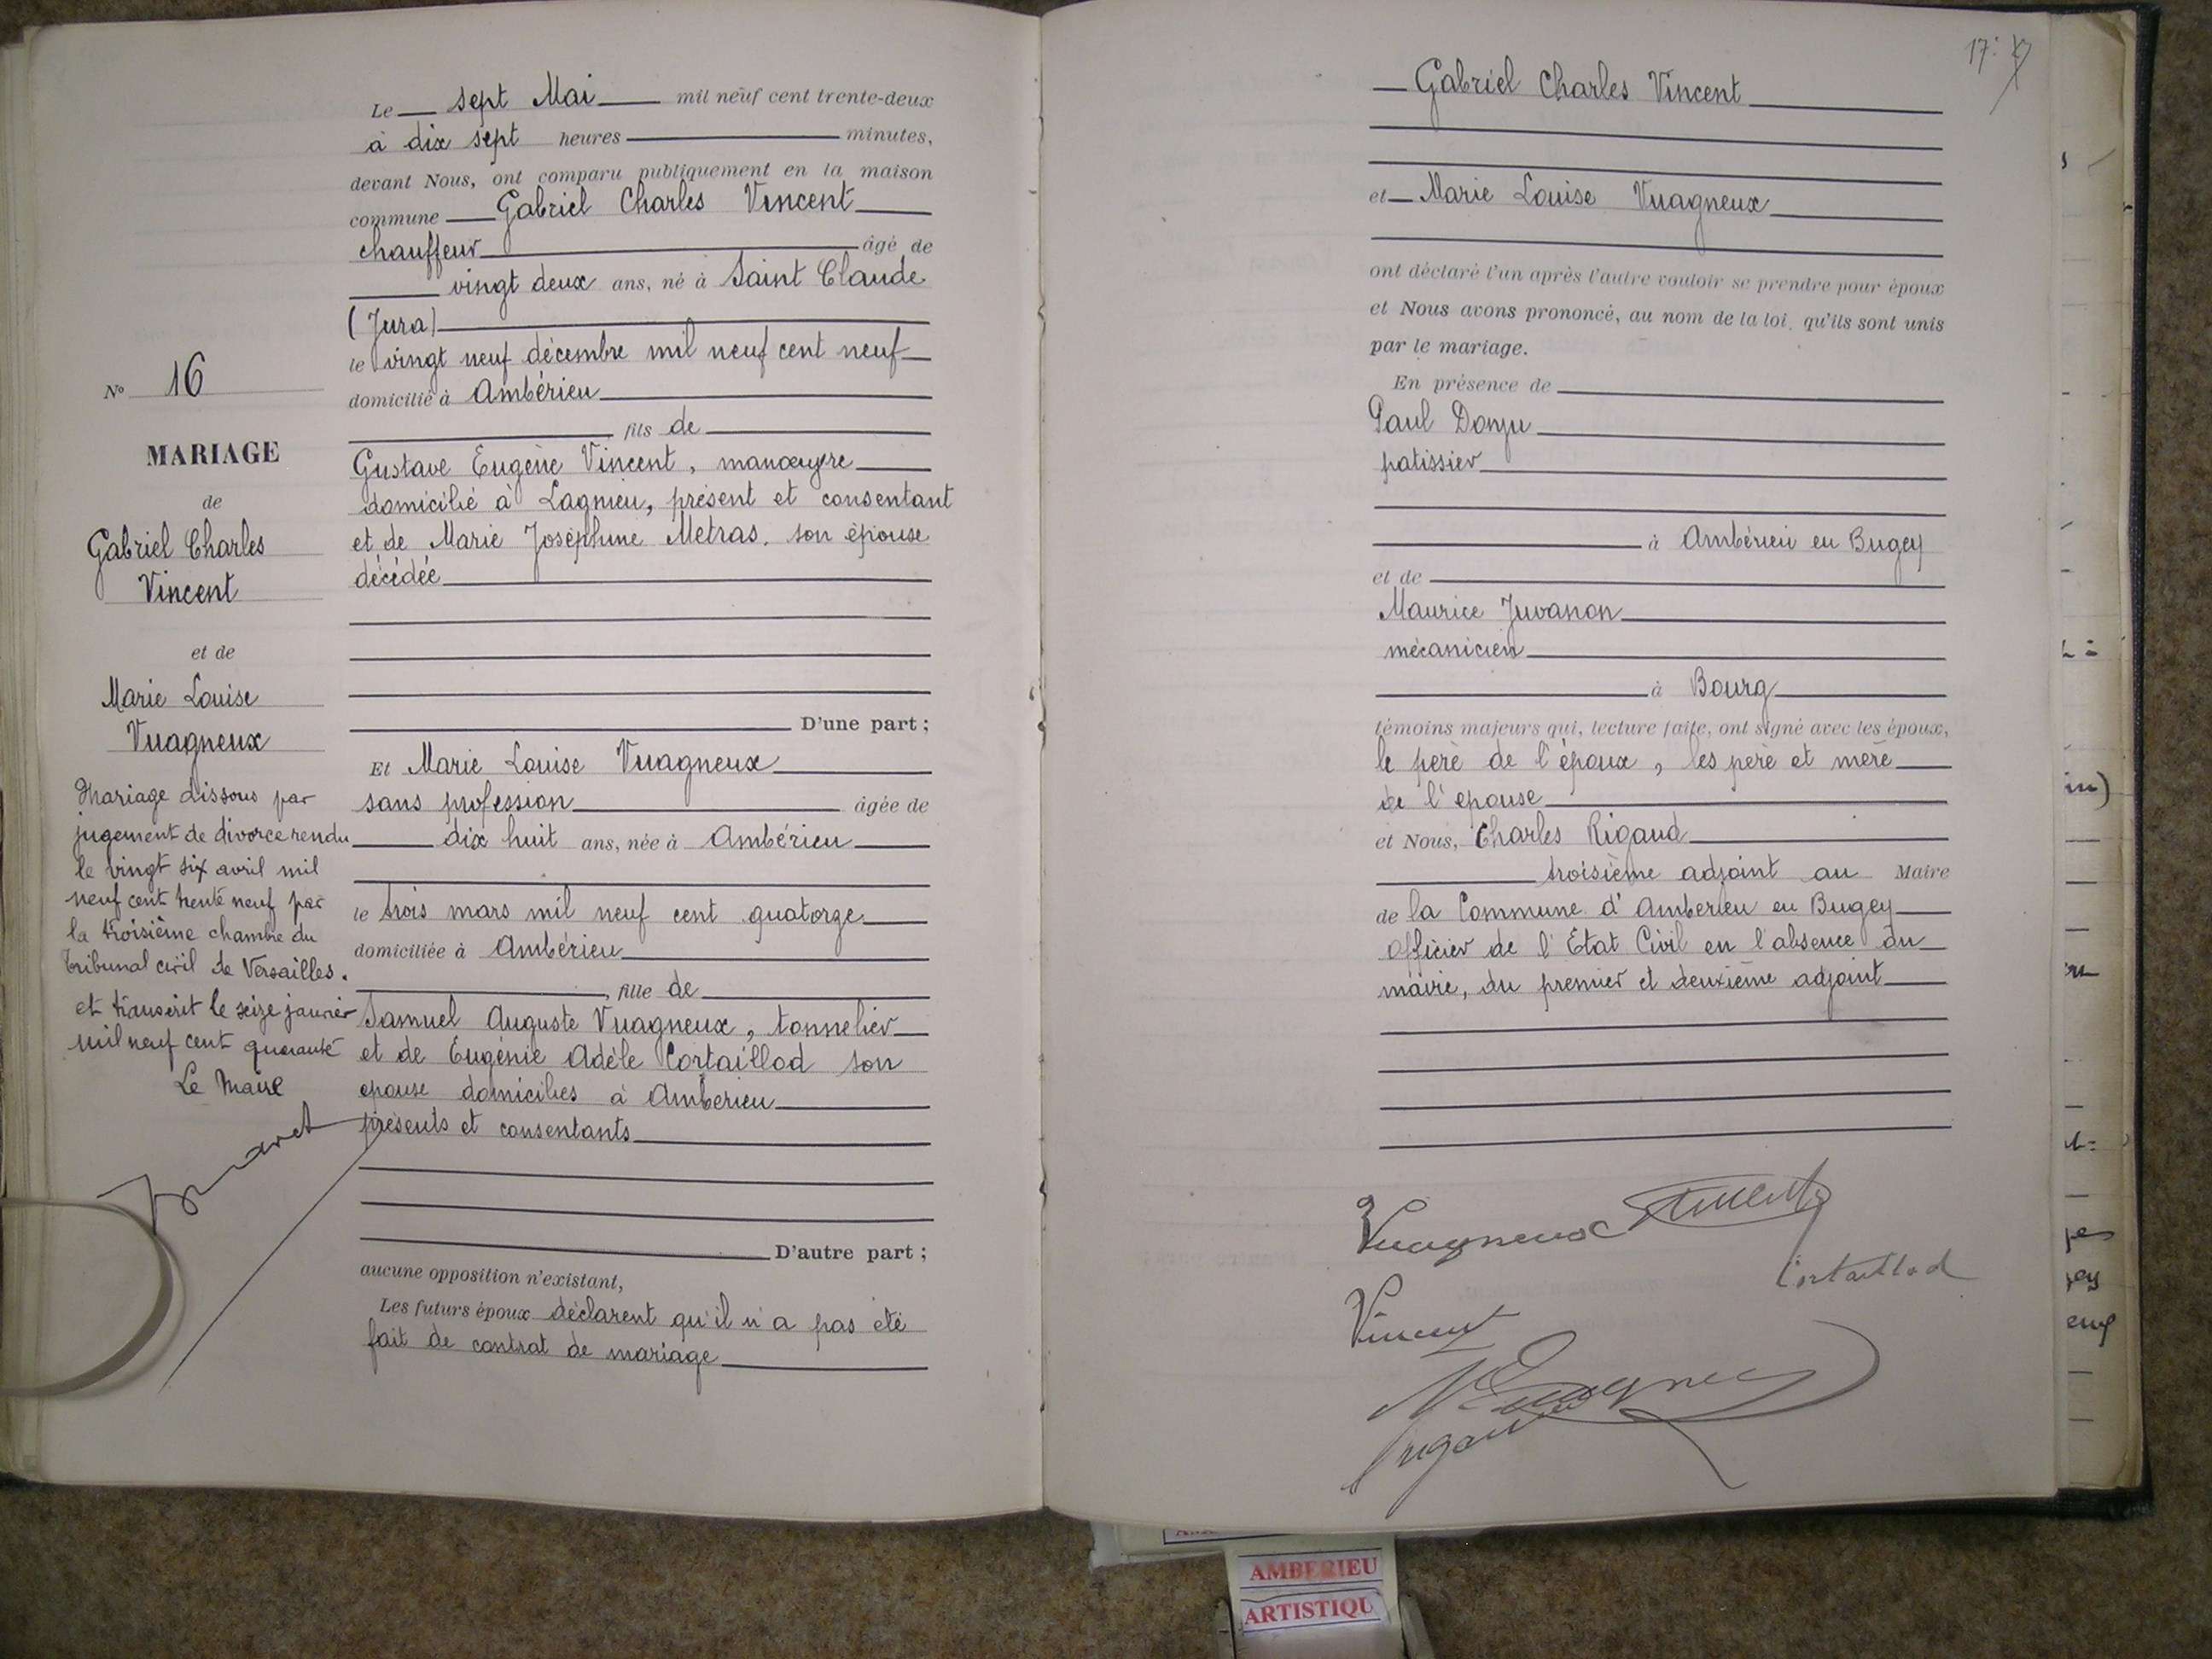 Le sept Mai mil neuf cent trente-deux
à dix sept heures minutes,
devant Nous, ont comparu publiquement en la maison
commune Gabriel Charles Vincent
chauffeur âgé de
vingt deux ans, né à Saint Claude
(Jura)
le vingt neuf décembre mil neuf cent neuf
domicilié à Ambérieu
fils de
Gustave Eugène Vincent, manœuvre
domicilié à Lagnieu, présent et consentant
et de Marie Joséphine Metras. son épouse
décédée
D'une part ;
Et Marie Louise Vuagneux
sans profession âgée de
dix huit ans, née à Ambérieu
le trois mars mil neuf cent quatorze
domiciliée à Ambérieu
, fille de
Samuel Auguste Vuagneux, tonnelier
et de Eugénie Adèle Cortaillod son
epouse domiciliés à Amberieu
présents et consentants
D'autre part ;
aucune opposition n'existant,
Les futurs époux déclarent qu'il n'a pas été
fait de contrat de mariage
No 16
MARIAGE
de
Gabriel Charles
Vincent
et de
Marie Louise
Vuagneux
Mariage dissous par
jugement de divorce rendu
le vingt six avril mil
neuf cent trente neuf par
la troisième chambre du
Tribunal civil de Versailles.
et transcrit le seize janvier
mil neuf cent quarante
Le Maire
17:
Gabriel Charles Vincent
et Marie Louise Vuagneux
ont déclaré l'un après l'autre vouloir se prendre pour époux
et Nous avons prononcé, au nom de la loi, qu'ils sont unis
par le mariage.
En présence de
Paul Donzu
patissier
à Ambérieu en Bugey
et de
Maurice Juvanon
mécanicien
à Bourg
témoins majeurs qui, lecture faite, ont signé avec les époux,
le père de l'époux, les père et mère
de l'epouse
et Nous, Charles Rigaud
troisième adjoint au Maire
de la Commune d'Amberieu en Bugey
officier de l'Etat Civil en l'absence du
maire, du premier et deuxième adjoint
Vuagneux
Cortaillod
Vincent
AMBERIEU
ARTISTIQU